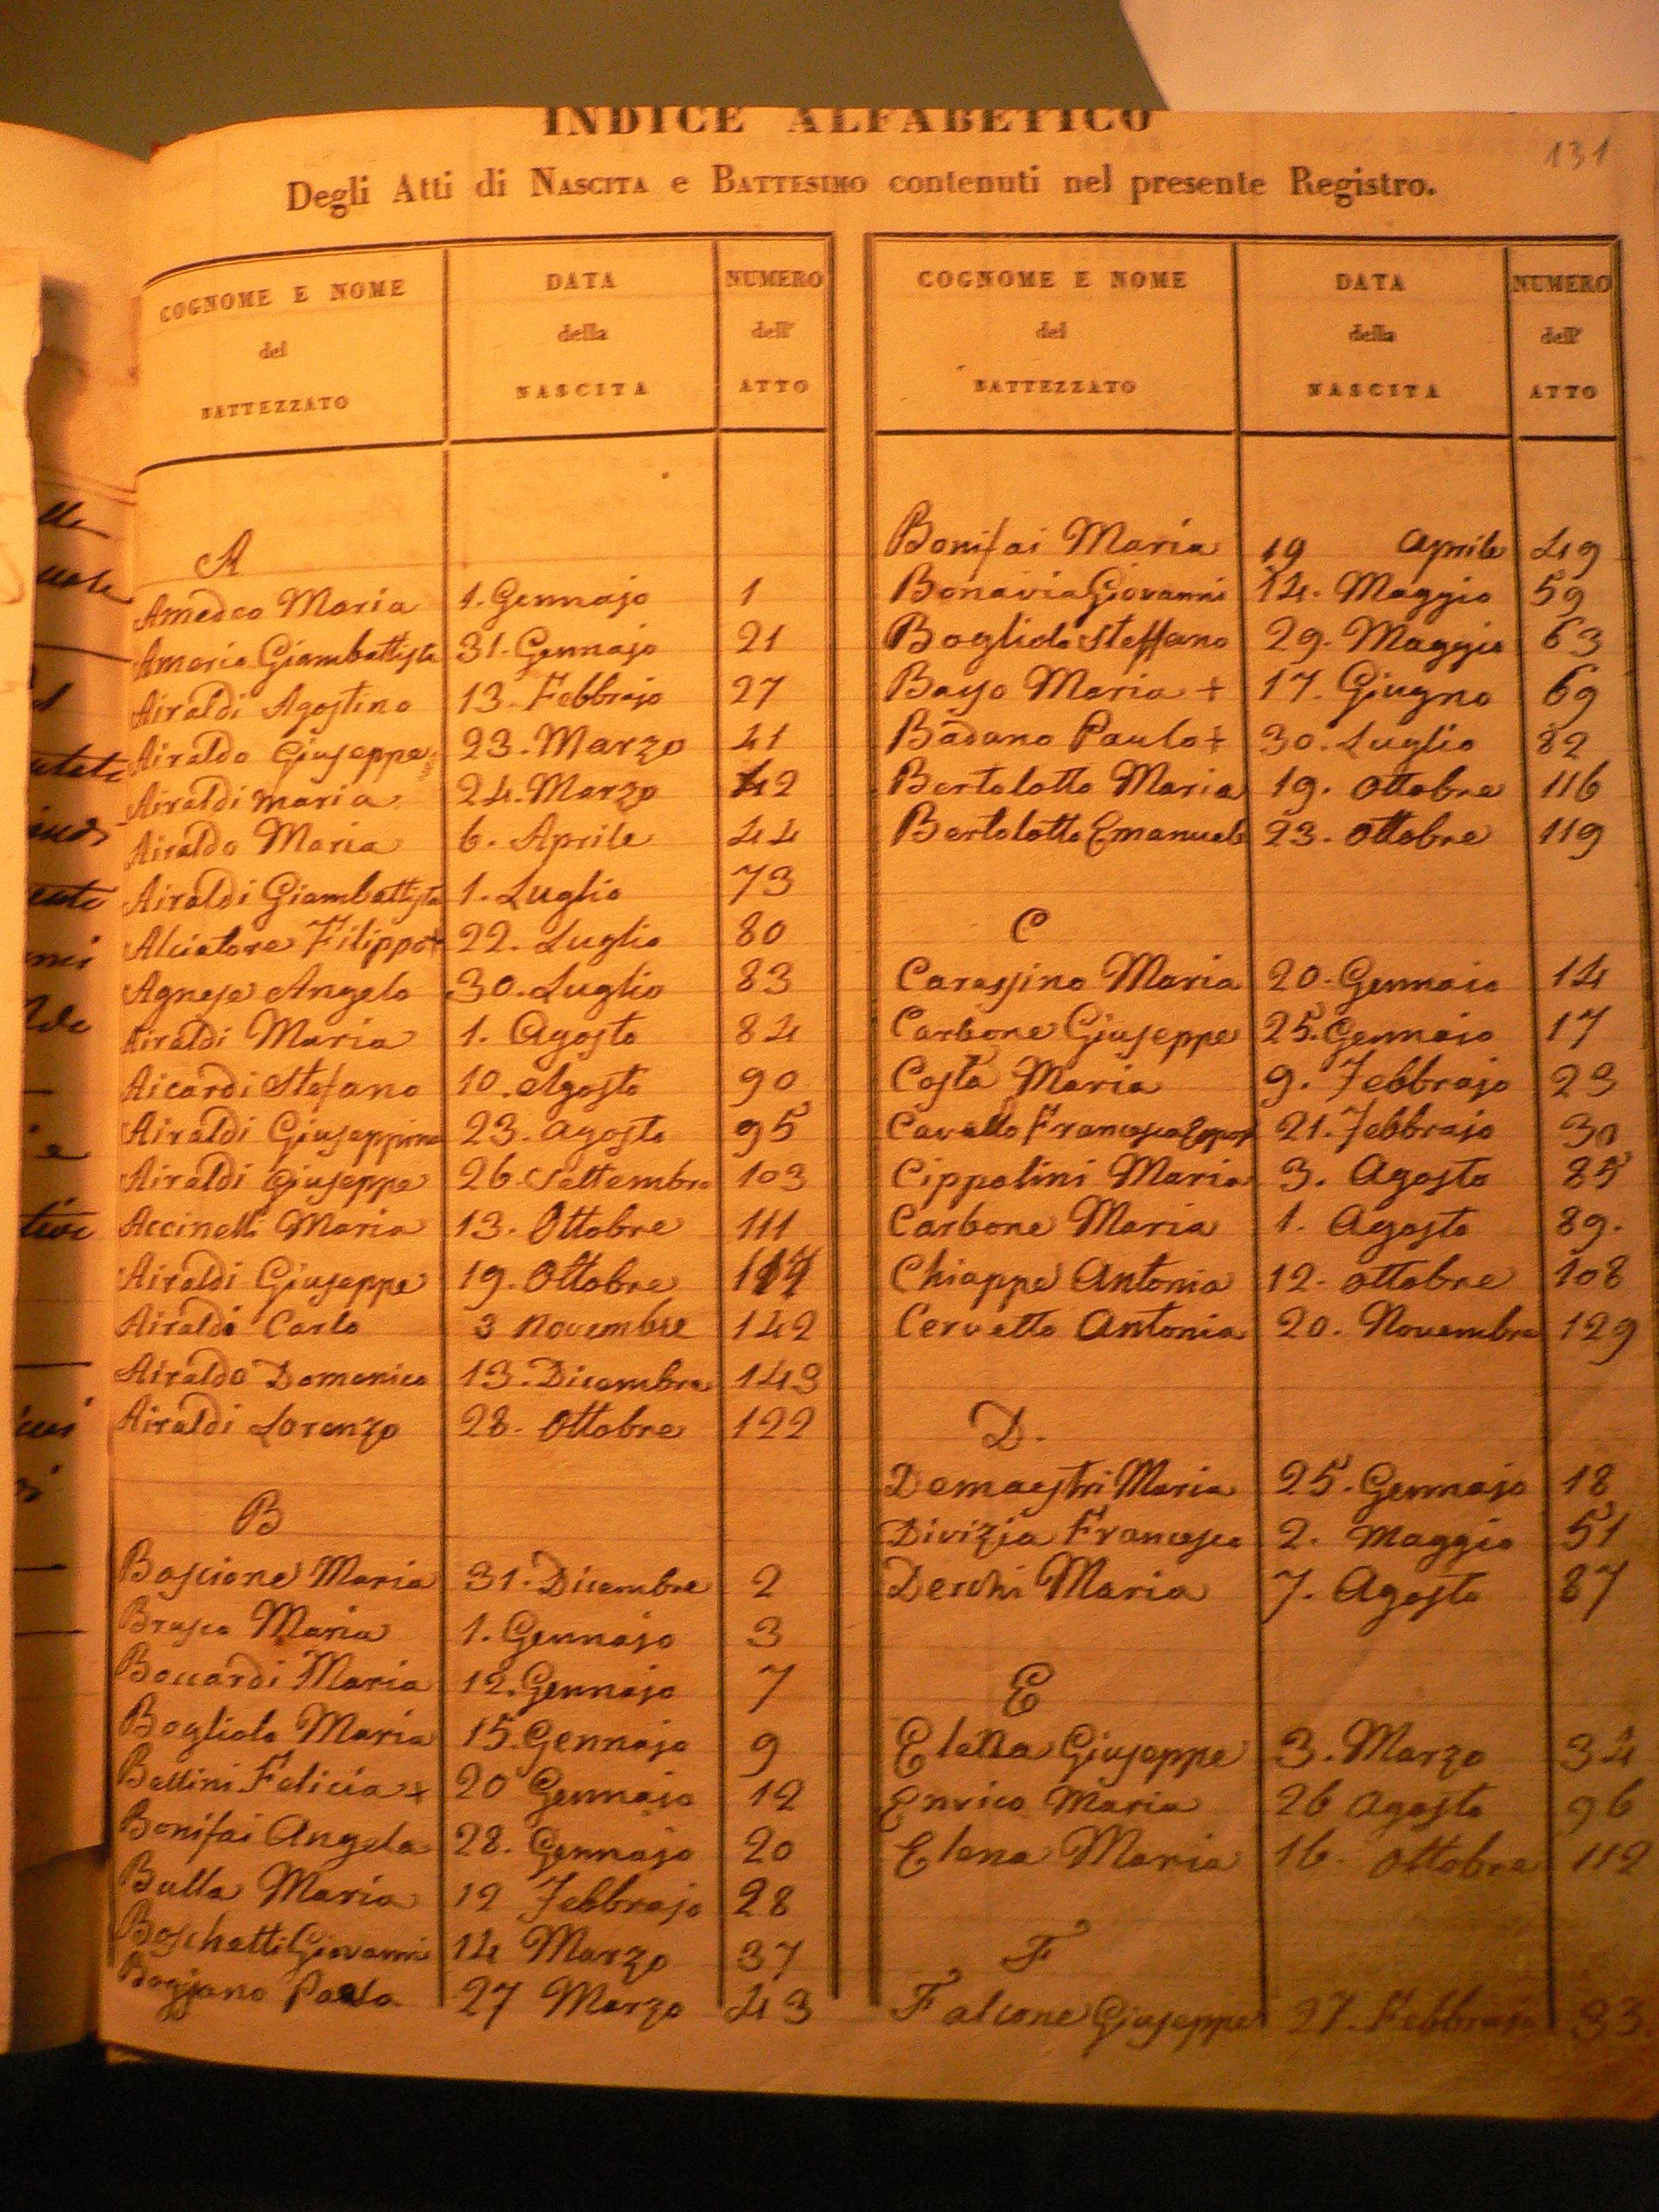 INDICE ALFABETICO
131
Degli Atti di NASCITA e BATTESIMO contenuti nel presente Registro.
COGNOME E NOME del BATTEZZATO DATA della NASCITA NUMERO dell' ATTO
A
Amedeo Maria 1. Gennajo 1
Amerio Giambattista 31. Gennajo 21
Airaldi Agostino 13. Febbrajo 27
Airaldo Giuseppe 23. Marzo 41
Airaldi Maria 24. Marzo 42
Airaldo Maria 6. Aprile 44
Airaldi Giambattista 1. Luglio 73
Alciatore Filippo + 22. Luglio 80
Agnese Angelo 30. Luglio 83
Airaldi Maria 1. Agosto 84
Aicardi Stefano 10. Agosto 90
Airaldi Giuseppina 23. Agosto 95
Airaldi Giuseppe 26. Settembre 103
Accinelli Maria 13. Ottobre 111
Airaldi Giuseppe 19. Ottobre 117
Airaldi Carlo 3 Novembre 142
Airaldo Domenico 13. Dicembre 143
Airaldi Lorenzo 28. Ottobre 122
B
Bascione Maria 31. Dicembre 2
Brasco Maria 1. Gennajo 3
Boccardi Maria 12. Gennajo 7
Bogliolo Maria 15. Gennajo 9
Bellini Felicia + 20 Gennajo 12
Bonifai Angela 28. Gennajo 20
Bulla Maria 12 Febbrajo 28
Boschetti Giovanni 14 Marzo 37
Paolo 27 Marzo 43
COGNOME E NOME del BATTEZZATO DATA della NASCITA NUMERO dell' ATTO
Bonifai Maria 19 Aprile 49
Bonavia Giovanni 14. Maggio 59
Bogliolo Steffano 29. Maggio 63
Bayo Maria + 17. Giugno 69
Badano Paulo + 30. Luglio 82
Bertolotto Maria 19. Ottobre 116
Bertolotto Emanuele 23. Ottobre 119
C
Carassino Maria 20. Gennaio 14
Carbone Giuseppe 25. Gennaio 17
Costa Maria 9. Febbrajo 23
Cavallo Francesca 21. Febbrajo 30
Cippolini Maria 3. Agosto 85
Carbone Maria 1. Agosto 89.
Chiappe Antonia 12. Ottobre 108
Cervetto Antonia 20. Novembre 129
D.
Demaestri Maria 25. Gennajo 18
Divizia Francesco 2. Maggio 51
Derchi Maria 7. Agosto 87
E
Elena Giuseppe 3. Marzo 34
Enrico Maria 26 Agosto 96
Elena Maria 16. Ottobre 112
F
Falcone Giuseppe 27. Febbrajo 33.